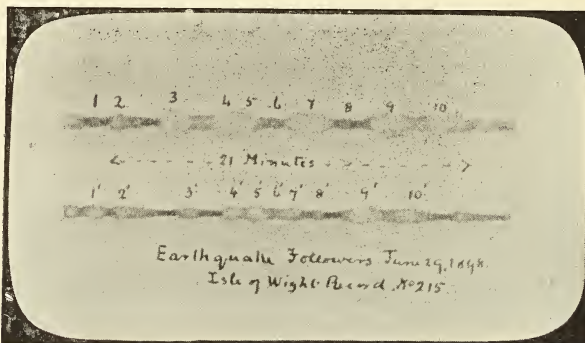 1 2 3 4 5 6 7 8 9 10
21 Minutes
1' 2' 3' 4' 5' 6' 7' 8' 9' 10'
Earthquake Followers June 29, 1898.
Isle of Wight Record. No 215.